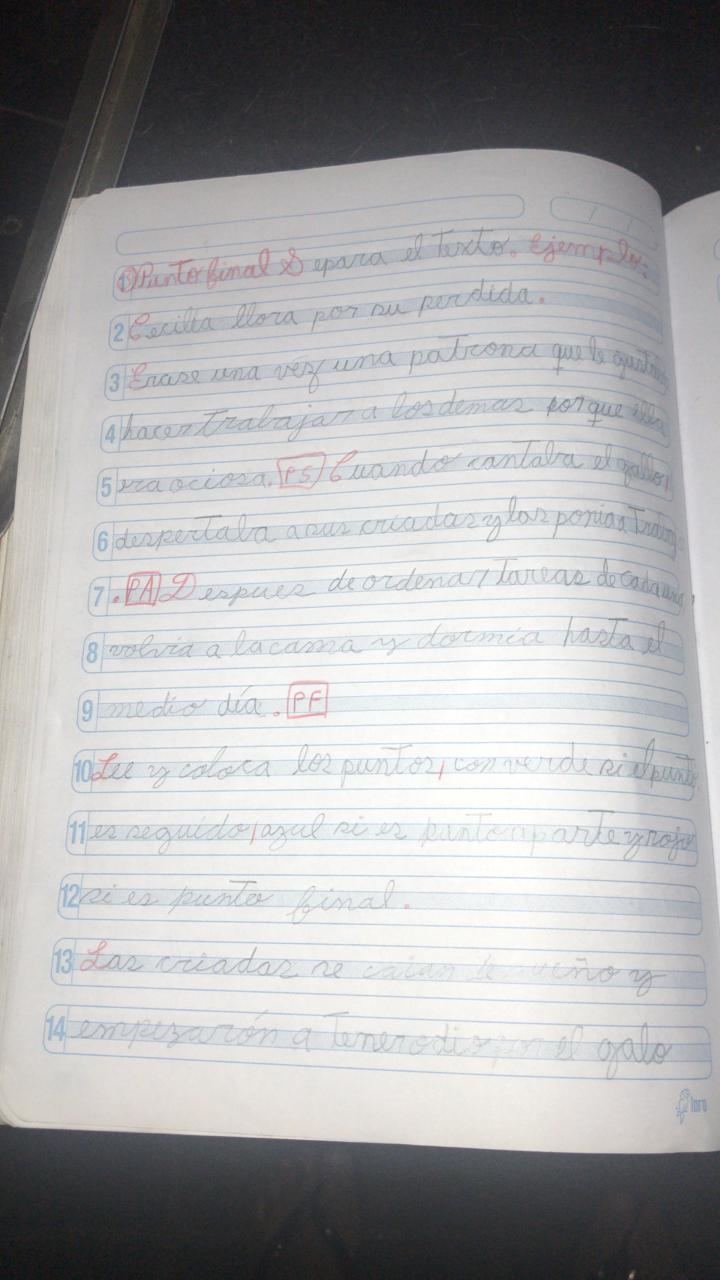 1 Punto final Separa el texto. Ejemplo:
2 Cecilia llora por su perdida.
3 Erase una vez una patrona que le
4 hacer trabajar a los demas porque ella
5 era ociosa. PS Cuando cantaba el gallo,
6 despertaba a sus criadas y las ponia a
7 . PA Despues de ordenar tareas de cada una,
8 volvia a la cama y dormia hasta el
9 medio día. PF
10 Lee y coloca los puntos, con verde si el punto
11 es seguido, azul si es punto aparte y rojo
12 si es punto final.
13 Las criadas se caian de sueño y
14 empezarón a tener odio por el galo
loro